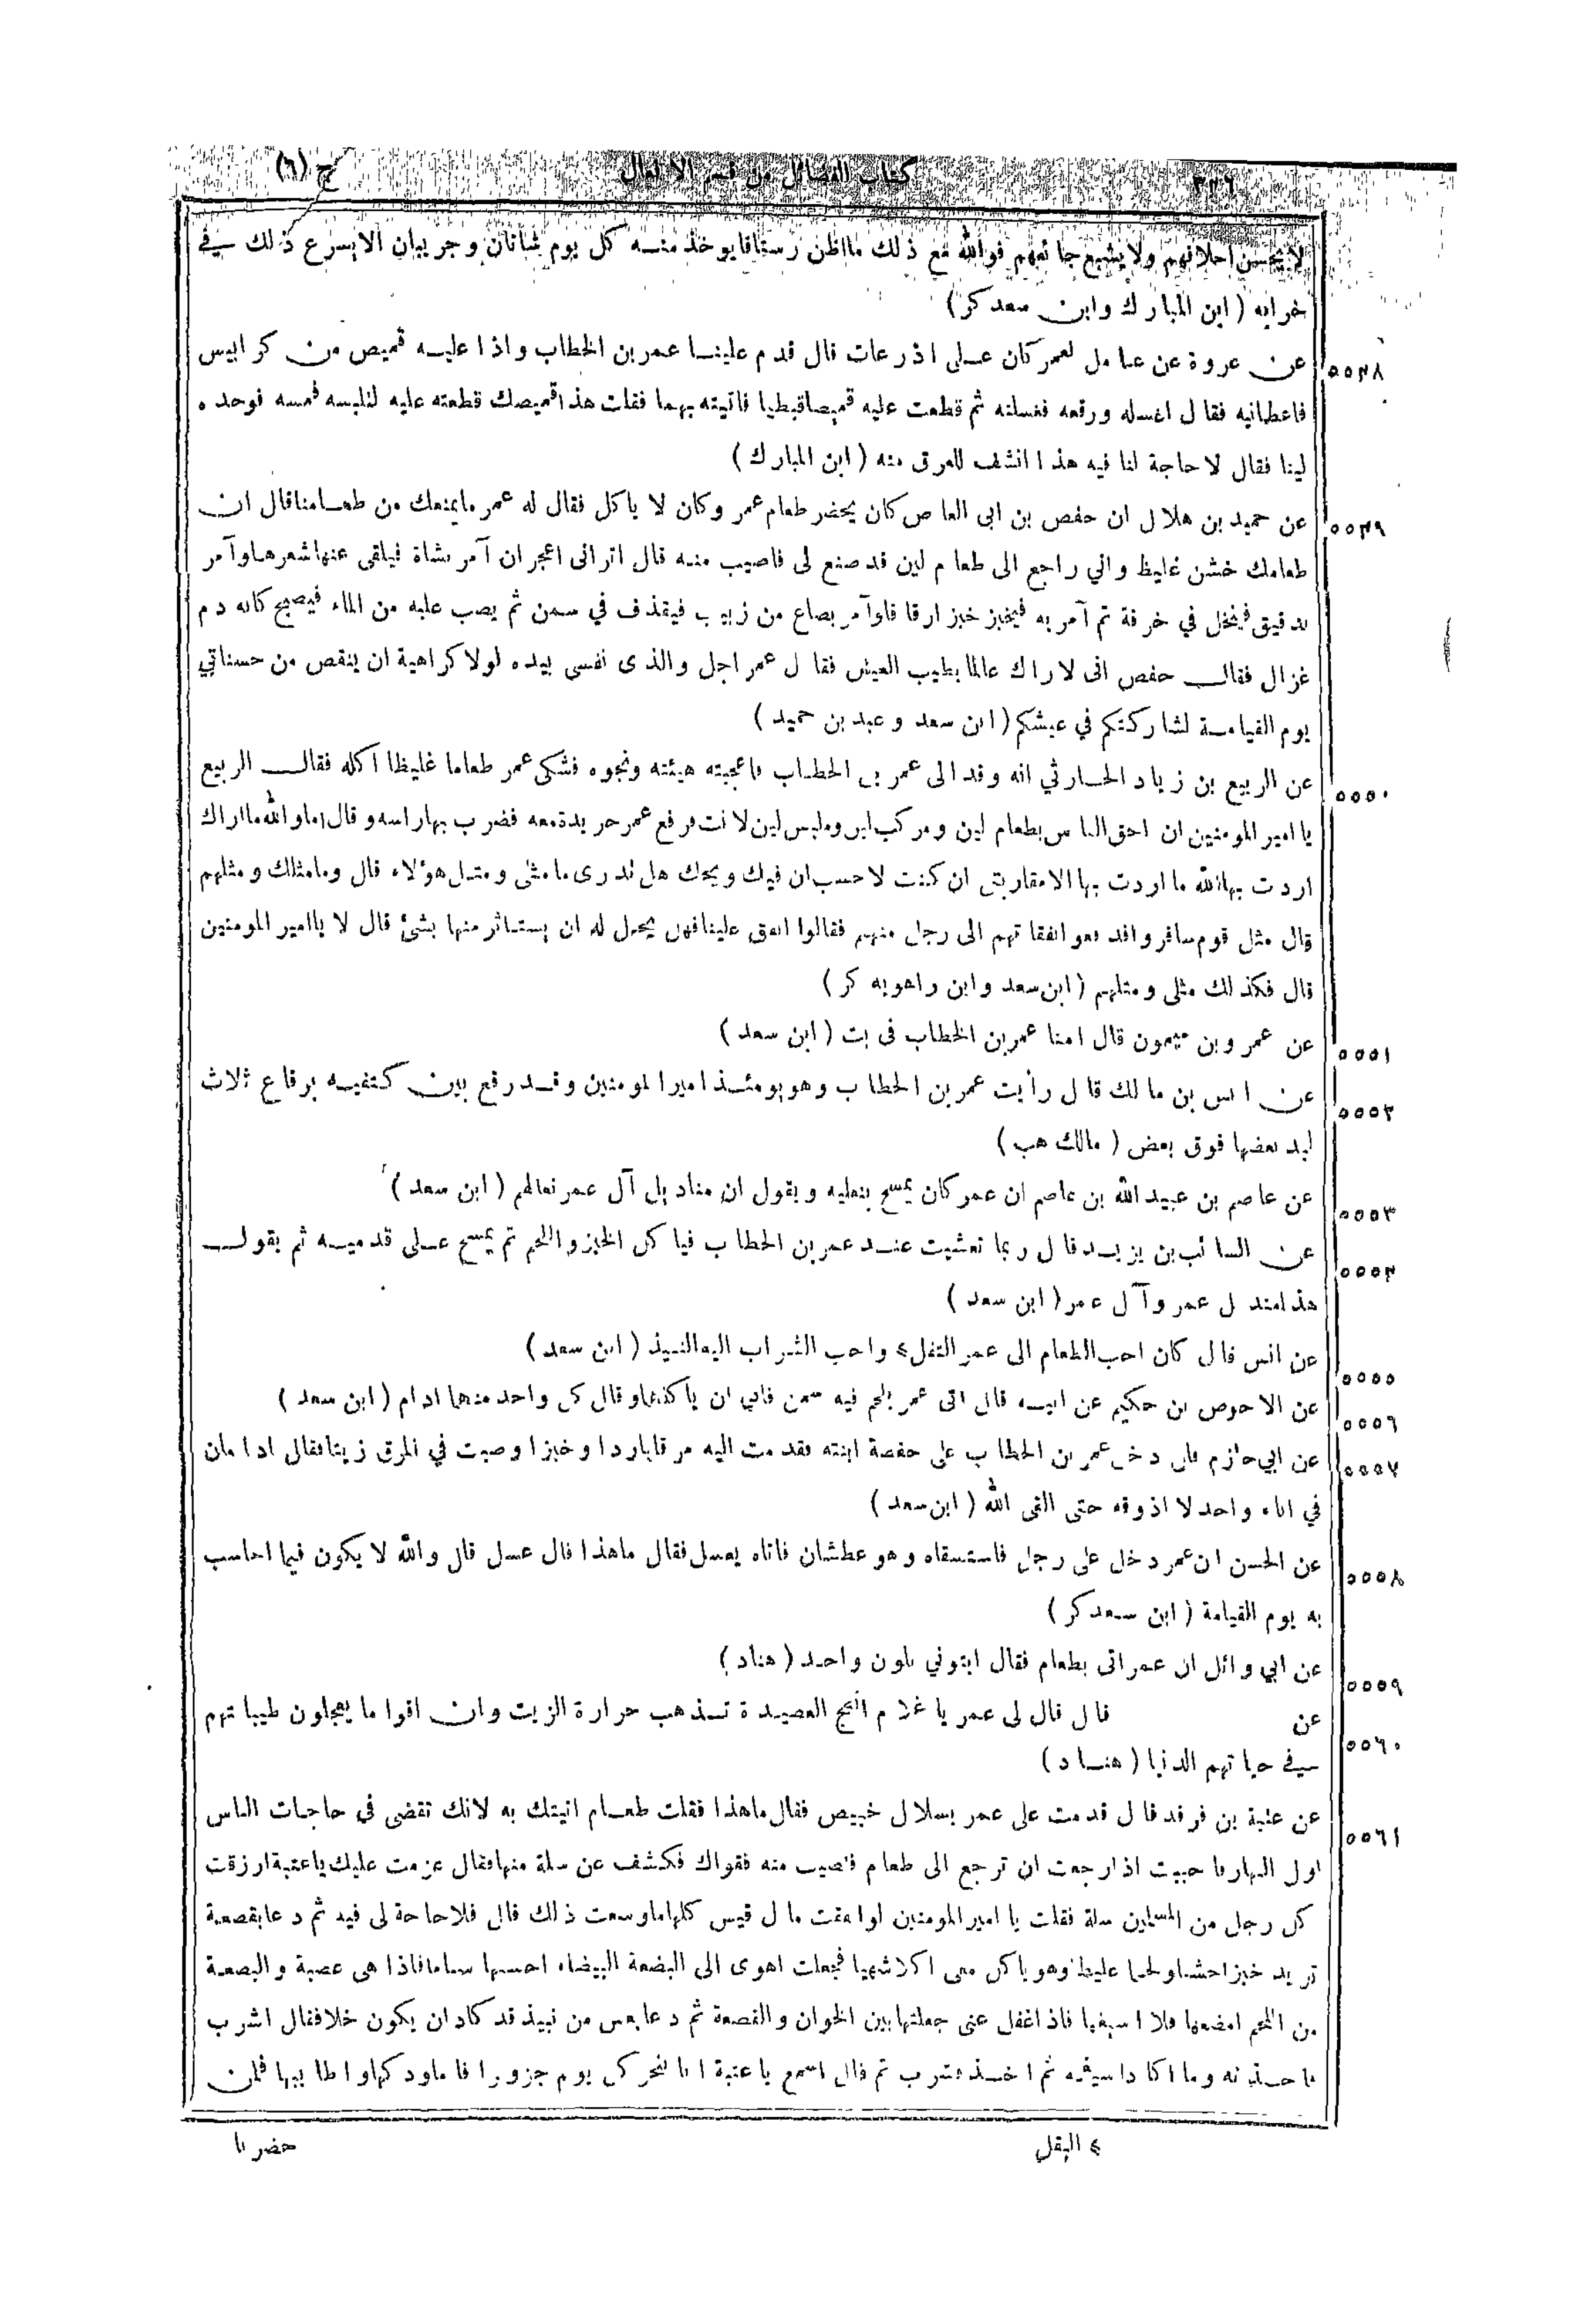 ٣٣٦ كتاب الفضائل من قسم الافعال ج (٦)
لا يحسن اخلاقهم ولا يشبع جائعهم فوالله مع ذلك ما اظن رستاقا يوخذ منه كل يوم شاتان وجريبان الا يسرع ذلك في
خرابه (ابن المبارك وابن سعد كر)
٥٥٤٨ عن عروة عن عامل لعمر كان على اذرعات قال قدم علينا عمر بن الخطاب واذا عليه قميص من كرابيس
فاعطانيه فقال اغسله ورقعه فغسلته ثم قطعت عليه قميصا قبطيا فاتيته بهما فقلت هذا قميصك قطعته عليه لتلبسه فمسه فوجده
لينا فقال لا حاجة لنا فيه هذا انشف للعرق منه (ابن المبارك)
٥٥٤٩ عن حميد بن هلال ان حفص بن ابى العاص كان يحضر طعام عمر وكان لا ياكل فقال له عمر ما يمنعك من طعامنا قال ان
طعامك خشن غليظ واني راجع الى طعام لين قد صنع لى فاصيب منه قال اترانى اعجز ان آمر بشاة فيلقى عنها شعرها وآمر
بدقيق فينخل في خرقة ثم آمر به فيخبز خبزا رقاقا وآمر بصاع من زبيب فيقذف في سمن ثم يصب عليه من الماء فيصبح كانه دم
غزال فقال حفص انى لاراك عالما بطيب العيش فقال عمر اجل والذى نفسى بيده لولا كراهية ان ينقص من حسناتي
يوم القيامة لشاركتكم في عيشكم (ابن سعد وعبد بن حميد)
٥٥٥٠ عن الربيع بن زياد الحارثي انه وفد الى عمر بن الخطاب فاعجبته هيئته ونحوه فشكى عمر طعاما غليظا اكله فقال الربيع
يا امير المومنين ان احق الناس بطعام لين ومركب لين وملبس لين لانت فرفع عمر جريدة معه فضرب بها راسه وقال اما والله ما اراك
اردت بها الله ما اردت بها الا مقاربتى ان كنت لاحسب ان فيك ويحك هل تدرى ما مثلى ومثل هؤلاء قال وما مثلك ومثلهم
قال مثل قوم سافروا فدفعوا نفقاتهم الى رجل منهم فقالوا انفق علينا فهل يحل له ان يستاثر منها بشئ قال لا ياامير المومنين
قال فكذلك مثلى ومثلهم (ابن سعد وابن راهويه كر)
٥٥٥١ عن عمرو بن ميمون قال امنا عمر بن الخطاب فى بت (ابن سعد)
٥٥٥٢ عن انس بن مالك قال رأيت عمر بن الخطاب وهو يومئذ امير المومنين وقد رقع بين كتفيه برقاع ثلاث
لبد بعضها فوق بعض (مالك هب)
٥٥٥٣ عن عاصم بن عبيد الله بن عاصم ان عمر كان يمسح بنعليه ويقول ان مناديل آل عمر نعالهم (ابن سعد)
٥٥٥٤ عن السائب بن يزيد قال ربما تعشيت عند عمر بن الخطاب فياكل الخبز واللحم ثم يمسح على قدميه ثم يقول
هذا مندل عمر وآل عمر (ابن سعد)
٥٥٥٥ عن انس قال كان احب الطعام الى عمر الثفل٤ واحب الشراب اليه النبيذ (ابن سعد)
٥٥٥٦ عن الاحوص بن حكيم عن ابيه قال اتى عمر بلحم فيه سمن فابى ان ياكلهما وقال كل واحد منهما ادام (ابن سعد)
٥٥٥٧ عن ابي حازم قال دخل عمر بن الخطاب على حفصة ابنته فقدمت اليه مرقا باردا وخبزا وصبت في المرق زيتا فقال ادامان
في اناء واحد لا اذوقه حتى القى الله (ابن سعد)
٥٥٥٨ عن الحسن ان عمر دخل على رجل فاستسقاه وهو عطشان فاتاه بعسل فقال ما هذا قال عسل قال والله لا يكون فيما احاسب
به يوم القيامة (ابن سعد كر)
٥٥٥٩ عن ابي وائل ان عمر اتى بطعام فقال ايتوني بلون واحد (هناد)
٥٥٦٠ عن قال قال لى عمر يا غلام انضج العصيدة تذهب حرارة الزيت وان اقواما يعجلون طيباتهم
في حياتهم الدنيا (هناد)
٥٥٦١ عن عتبة بن فرقد قال قدمت على عمر بسلال خبيص فقال ما هذا فقلت طعام اتيتك به لانك تقضى فى حاجات الناس
اول النهار فاحببت اذا رجعت ان ترجع الى طعام فتصيب منه فقواك فكشف عن سلة منها فقال عزمت عليك يا عتبة ارزقت
كل رجل من المسلمين سلة فقلت يا امير المومنين لو انفقت مال قيس كلها ما وسعت ذلك قال فلا حاجة لى فيه ثم دعا بقصعة
ثريد خبزا خشنا ولحما غليظا وهو ياكل معى اكلا شهيا فجعلت اهوى الى البضعة البيضاء احسبها سناما فاذا هى عصبة والبضعة
من اللحم امضغها فلا اسيغها فاذا غفل عنى جعلتها بين الخوان والقصعة ثم دعا بعس من نبيذ قد كاد ان يكون خلا فقال اشرب
فاخذته وما اكاد اسيغه ثم اخذه فشرب ثم قال اسمع يا عتبة انا ننحر كل يوم جزورا فاما ودكها واطايبها فلمن
٤ البقل
حضرنا